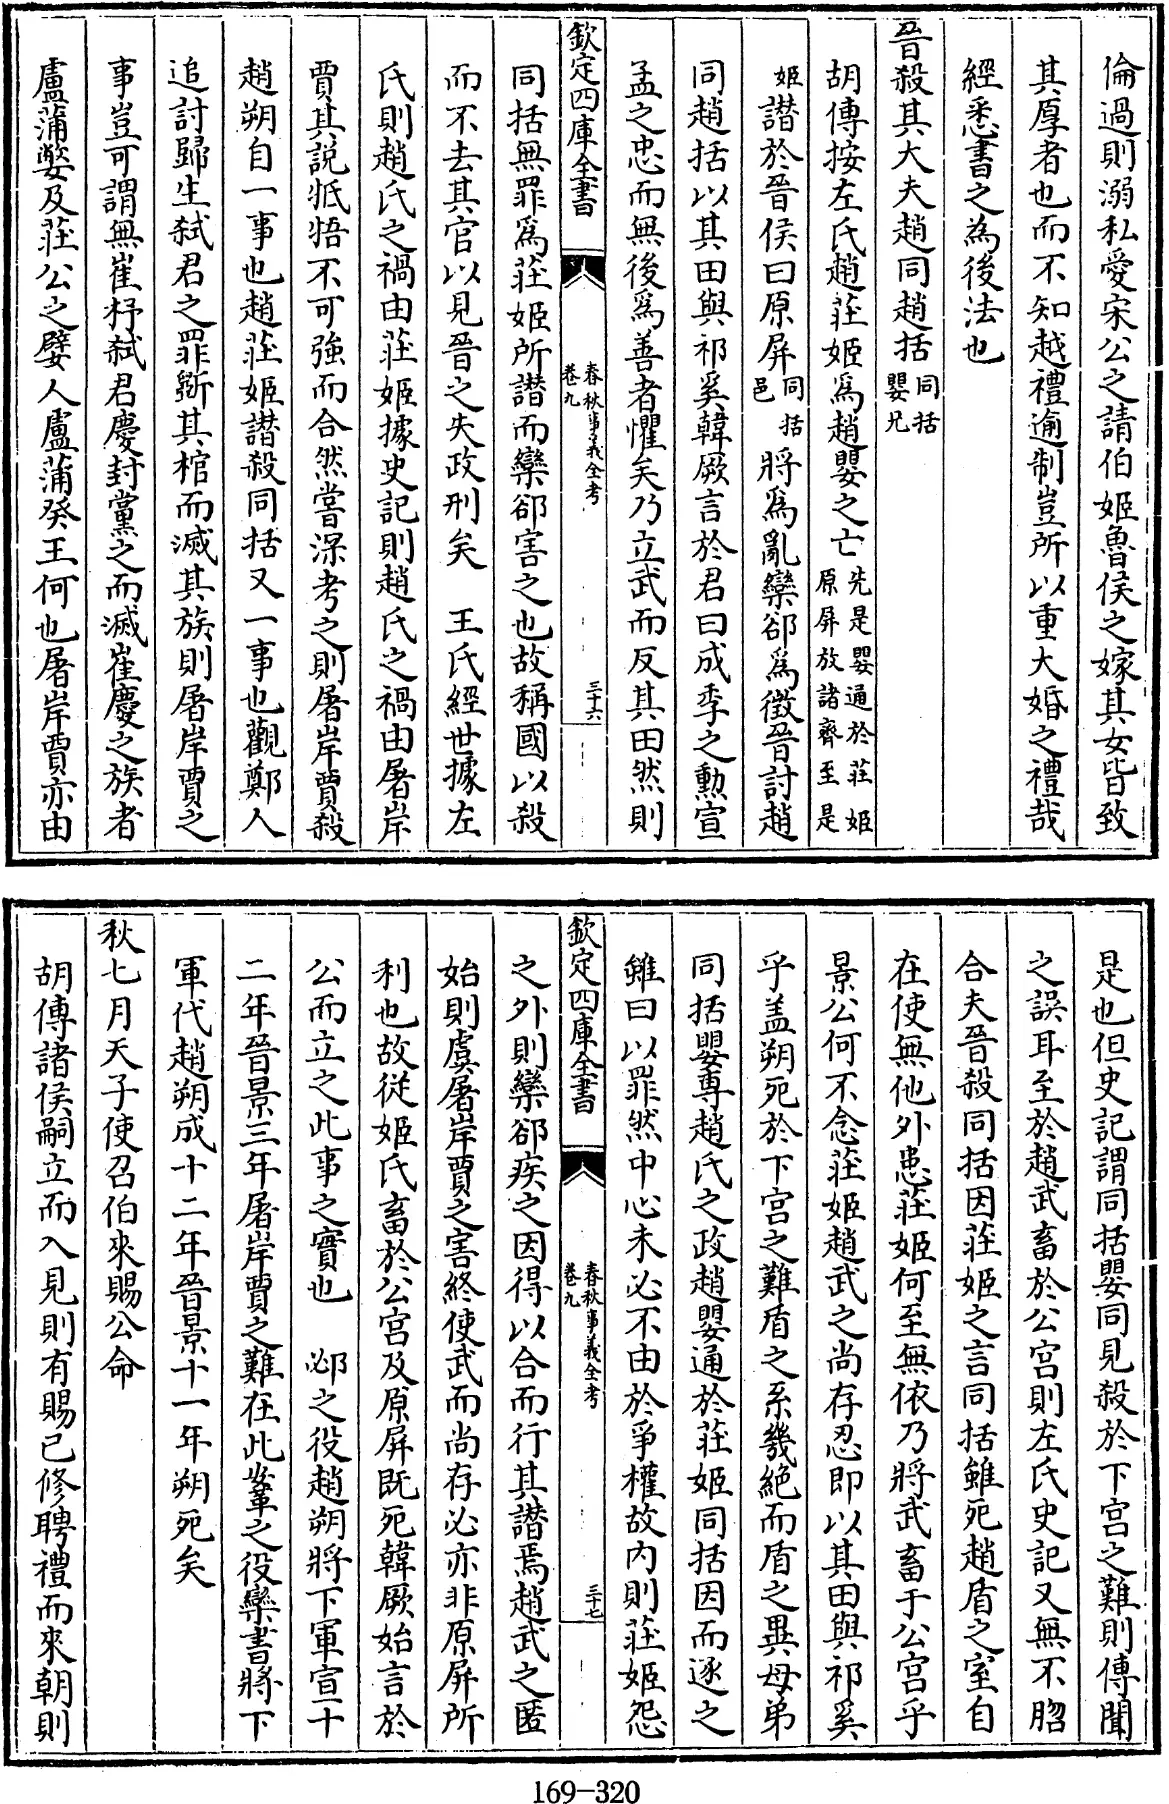 倫過則溺私愛宋公之請伯姬魯侯之嫁其女皆致
其厚者也而不知越禮逾制豈所以重大婚之禮哉
經悉書之為後法也
晉殺其大夫趙同趙括同括嬰兄
胡傳按左氏趙莊姬爲趙嬰之亡先是嬰通於莊姬原屏放諸齊至是
姬譖於晉侯曰原屏同括邑將爲亂欒郤爲徵晉討趙
同趙括以其田與祁奚韓厥言於君曰成季之勲宣
孟之忠而無後爲善者懼矣乃立武而反其田然則
欽定四庫全書
春秋事義全考
卷九
三十六
同括無罪爲莊姬所譖而欒郤害之也故稱國以殺
而不去其官以見晉之失政刑矣　王氏經世據左
氏則趙氏之禍由莊姬據史記則趙氏之禍由屠岸
賈其説牴牾不可強而合然嘗深考之則屠岸賈殺
趙朔自一事也趙莊姬譖殺同括又一事也觀鄭人
追討歸生弑君之罪斵其棺而滅其族則屠岸賈之
事豈可謂無崔杼弑君慶封黨之而滅崔慶之族者
盧蒲嫳及莊公之嬖人盧蒲癸王何也屠岸賈亦由
是也但史記謂同括嬰同見殺於下宮之難則傳聞
之誤耳至於趙武畜於公宮則左氏史記又無不脗
合夫晉殺同括因莊姬之言同括雖死趙盾之室自
在使無他外患莊姬何至無依乃將武畜于公宮乎
景公何不念莊姬趙武之尚存忍即以其田與祁奚
乎盖朔死於下宮之難盾之系幾絕而盾之異母弟
同括嬰專趙氏之政趙嬰通於莊姬同括因而逐之
雖曰以罪然中心未必不由於爭權故内則莊姬怨
欽定四庫全書
春秋事義全考
卷九
三十七
之外則欒郤疾之因得以合而行其譖焉趙武之匿
始則虞屠岸賈之害終使武而尚存必亦非原屏所
利也故從姬氏畜於公宮及原屏既死韓厥始言於
公而立之此事之實也　邲之役趙朔將下軍宣十
二年晉景三年屠岸賈之難在此鞌之役欒書將下
軍代趙朔成十二年晉景十一年朔死矣
秋七月天子使召伯來賜公命
胡傳諸侯嗣立而入見則有賜已修聘禮而來朝則
169-320